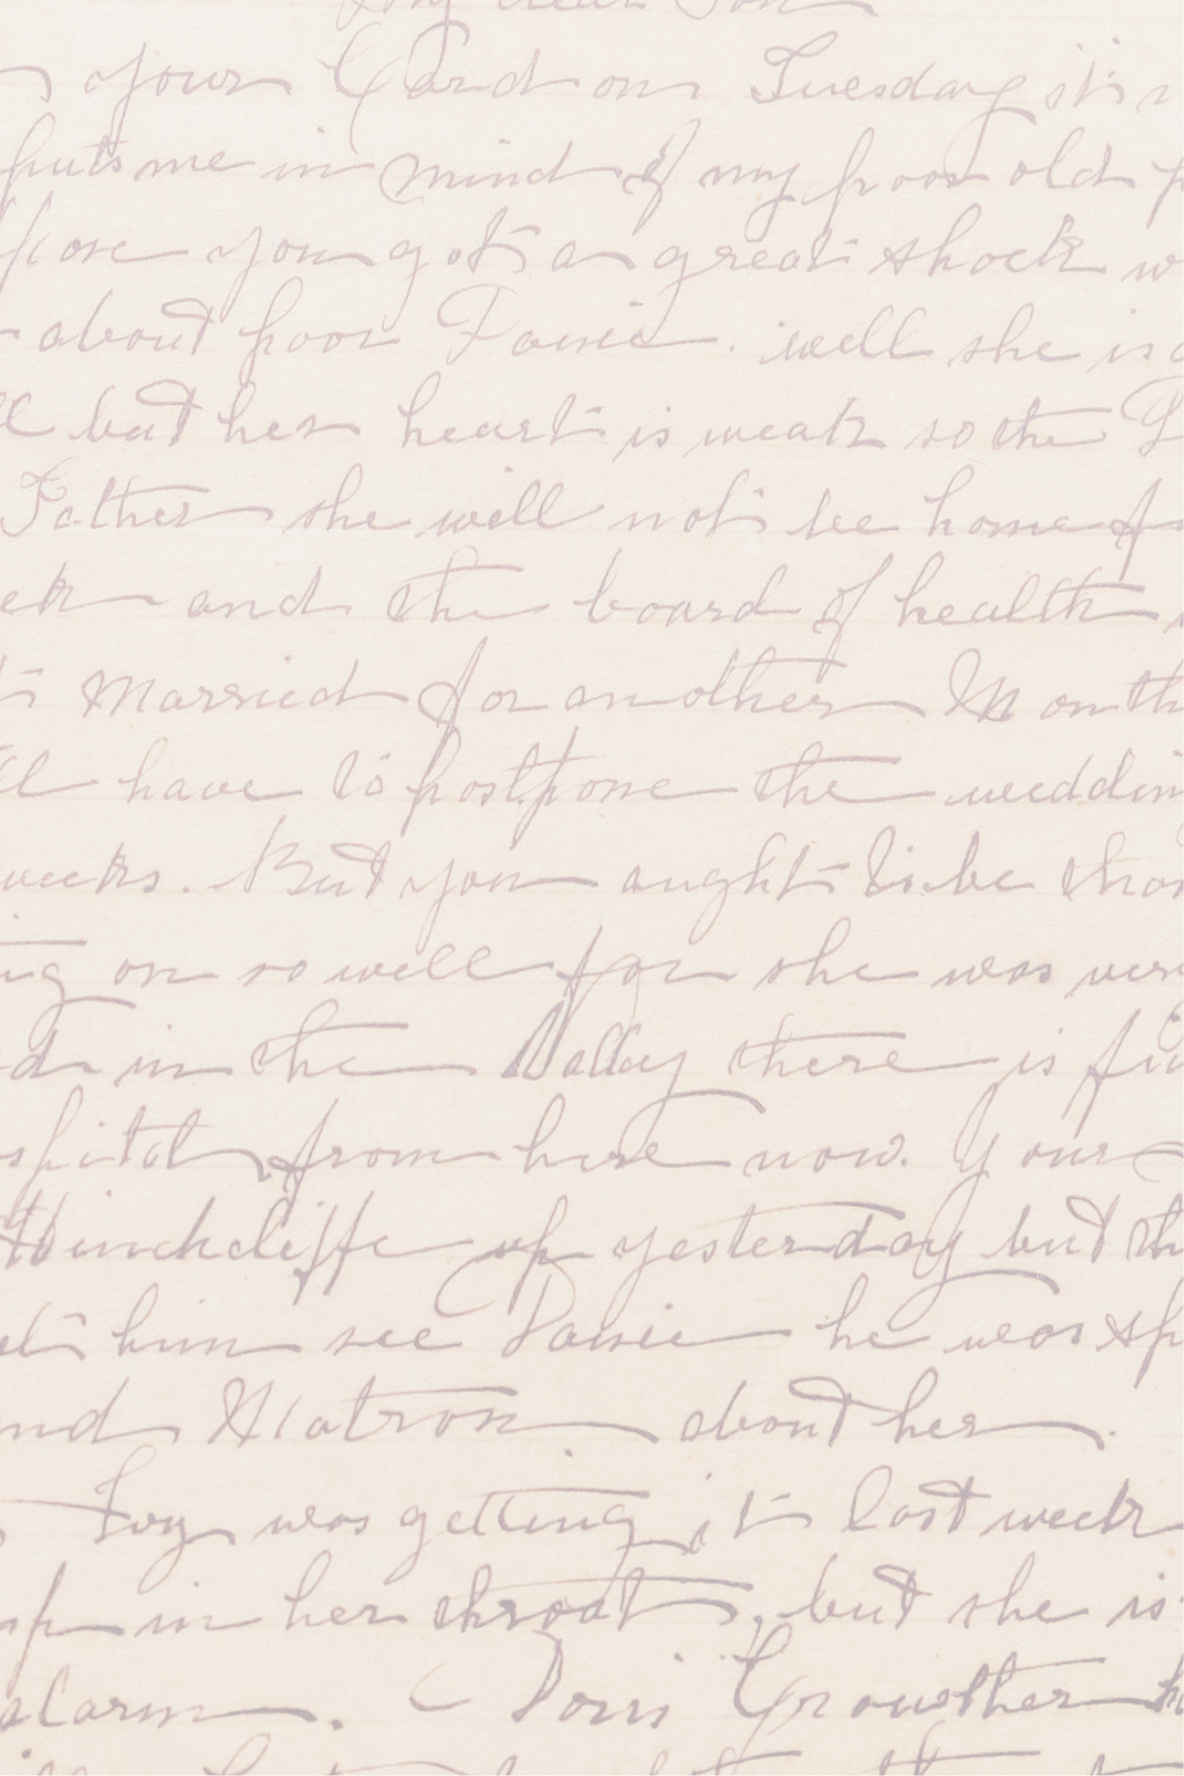 My dear Son
yours Card on Tuesday it's
puts me in mind of my poor old
pose you got a great shock w
about poor . well she is
ll but her heart is weak so the
Father she will not be home f
ek and the board of health
t married for another Month
ll have to postpone the weddin
weeks. But you aught to be than
ing on so well for she was very
d in the Valley there is
spital from here now. Your
Hinchcliffe up yesterday but th
et him see he was sp
nd Matron about her.
Ivy was getting it last week
up in her throat, but she is
alarm. Doris Growther h